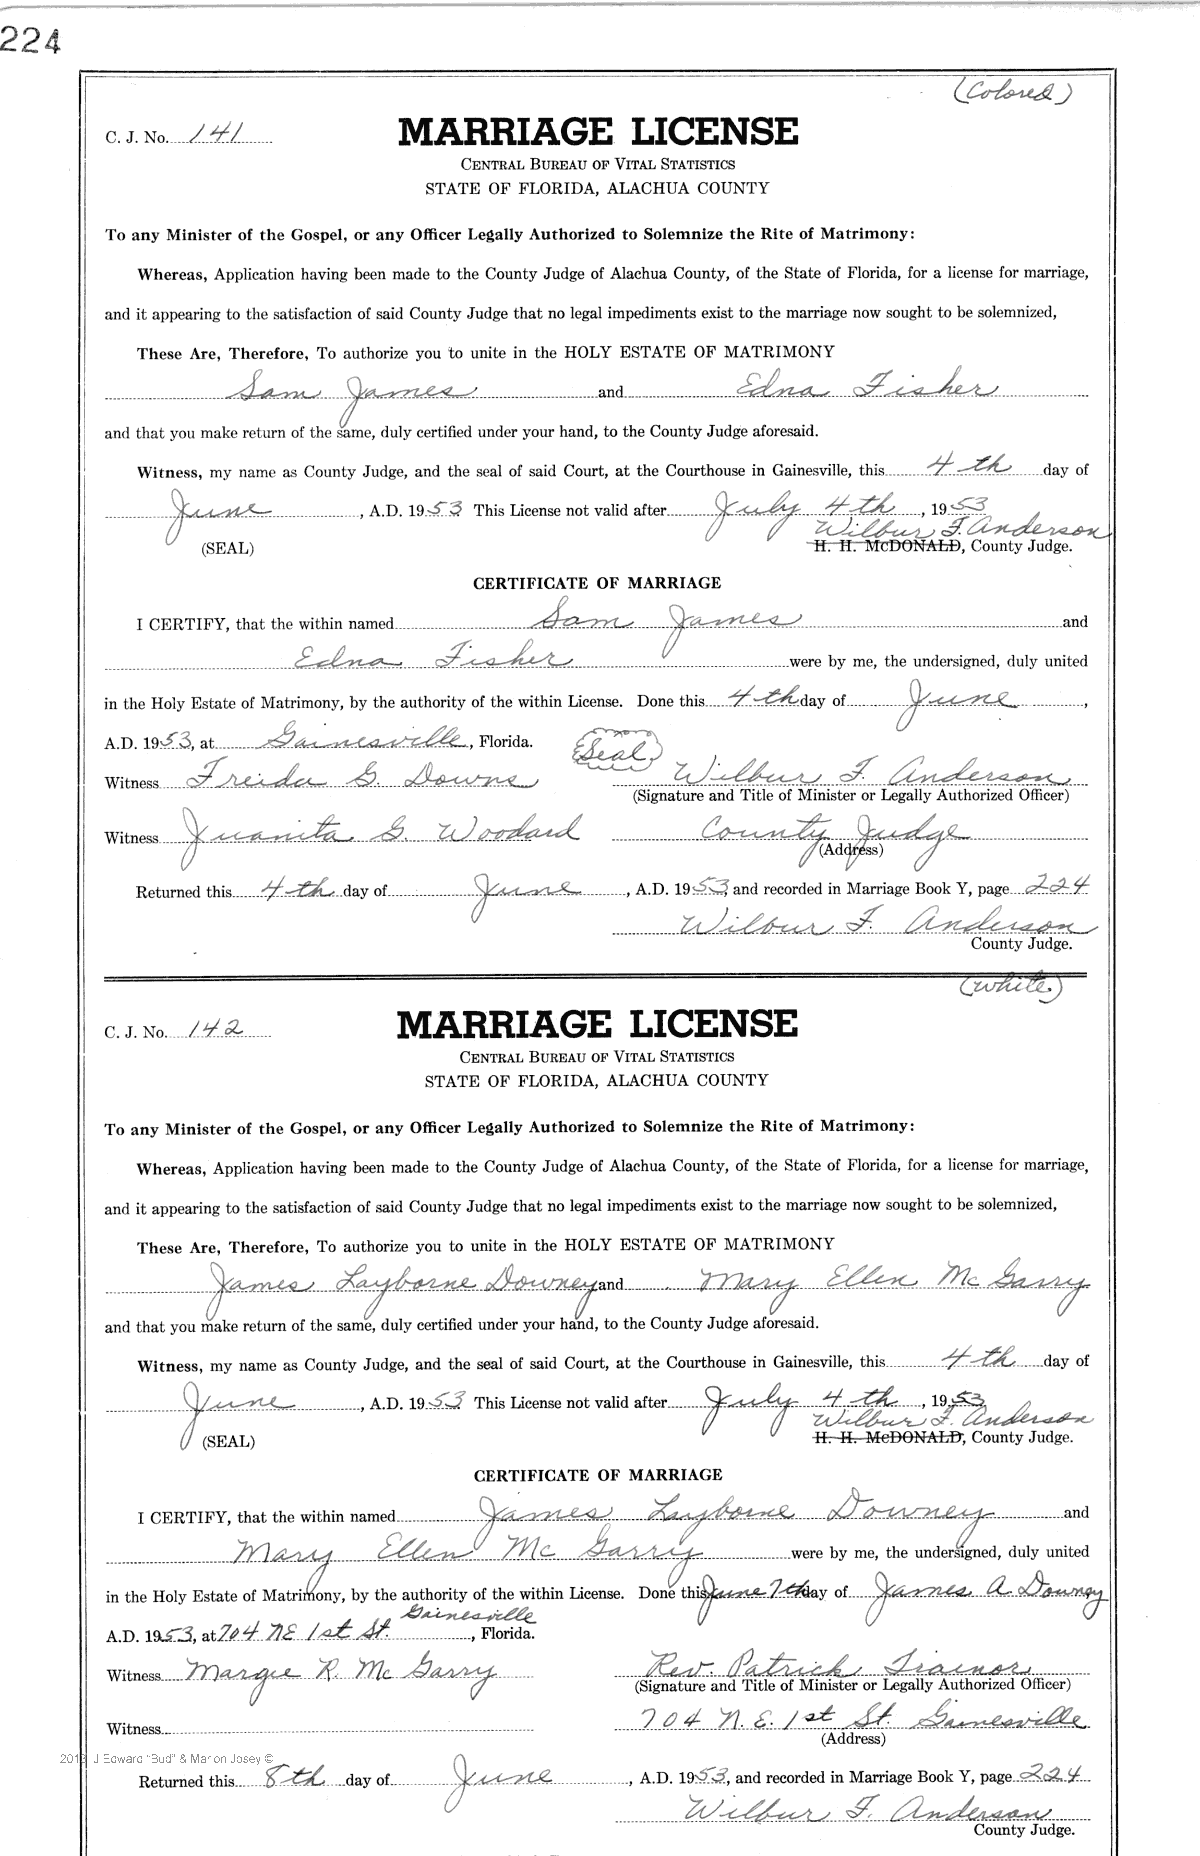 224
(Colored)
C. J. No. 141
MARRIAGE LICENSE
CENTRAL BUREAU OF VITAL STATISTICS
STATE OF FLORIDA, ALACHUA COUNTY
To any Minister of the Gospel, or any Officer Legally Authorized to Solemnize the Rite of Matrimony:
Whereas, Application having been made to the County Judge of Alachua County, of the State of Florida, for a license for marriage,
and it appearing to the satisfaction of said County Judge that no legal impediments exist to the marriage now sought to be solemnized,
These Are, Therefore, To authorize you to unite in the HOLY ESTATE OF MATRIMONY
Sam James and Edna Fisher
and that you make return of the same, duly certified under your hand, to the County Judge aforesaid.
Witness, my name as County Judge, and the seal of said Court, at the Courthouse in Gainesville, this 4th day of
June, A.D. 1953 This License not valid after July 4th, 1953
Wilbur F. Anderson
(SEAL) H. H. McDONALD, County Judge.
CERTIFICATE OF MARRIAGE
I CERTIFY, that the within named Sam James and
Edna Fisher were by me, the undersigned, duly united
in the Holy Estate of Matrimony, by the authority of the within License. Done this 4th day of June,
A.D. 1953, at Gainesville, Florida. Seal
Witness Freida G. Downs Wilbur F. Anderson
(Signature and Title of Minister or Legally Authorized Officer)
Witness Juanita G. Woodard County Judge
(Address)
Returned this 4th day of June, A.D. 1953, and recorded in Marriage Book Y, page 224
Wilbur F. Anderson
County Judge.
(white)
C. J. No. 142
MARRIAGE LICENSE
CENTRAL BUREAU OF VITAL STATISTICS
STATE OF FLORIDA, ALACHUA COUNTY
To any Minister of the Gospel, or any Officer Legally Authorized to Solemnize the Rite of Matrimony:
Whereas, Application having been made to the County Judge of Alachua County, of the State of Florida, for a license for marriage,
and it appearing to the satisfaction of said County Judge that no legal impediments exist to the marriage now sought to be solemnized,
These Are, Therefore, To authorize you to unite in the HOLY ESTATE OF MATRIMONY
James Layborne Downey and Mary Ellen Mc Garry
and that you make return of the same, duly certified under your hand, to the County Judge aforesaid.
Witness, my name as County Judge, and the seal of said Court, at the Courthouse in Gainesville, this 4th day of
June, A.D. 1953 This License not valid after July 4th, 1953
Wilbur F. Anderson
(SEAL) H. H. McDONALD, County Judge.
CERTIFICATE OF MARRIAGE
I CERTIFY, that the within named James Layborne Downey and
Mary Ellen Mc Garry were by me, the undersigned, duly united
in the Holy Estate of Matrimony, by the authority of the within License. Done this June 7th day of James A Downey
Gainesville
A.D. 1953, at 704 NE 1st St., Florida.
Witness Margie R. Mc Garry Rev. Patrick Trainor
(Signature and Title of Minister or Legally Authorized Officer)
Witness 704 N. E. 1st St. Gainesville
(Address)
2013 J Edward "Bud" & Marion Josey ©
Returned this 8th day of June, A.D. 1953, and recorded in Marriage Book Y, page 224
Wilbur F. Anderson
County Judge.